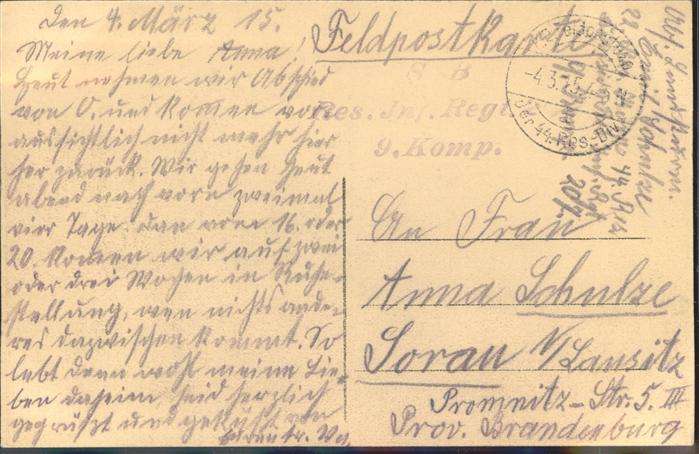 Den 4. März 15.
Meine liebe Anna!
Heut nehmen wir Abschied
von O. und komen vor
aussichtlich nicht mehr hier
her zurück. Wir gehen heut
abend nach vorn zweimal
vier Tage. dan vom 16. oder
20. komen wir auf zwei
oder drei Wochen in Ruhe-
stellung, wen nichts ande-
res dazwischen kommt. So
lebt denn wohl meine Lie-
ben daheim seid herzlich
gegrüßt und geküßt von
Euren tr.
Feldpostkarte
S B
Res. Inf. Reg
9. Komp.
-4.3.15
Der 44. Res. Div.
Abs.
Schulze
44. Res
An Frau
Anna Schulze
Sorau N/Lausitz
Promnitz-Str. 5. III
Prov. Brandenburg